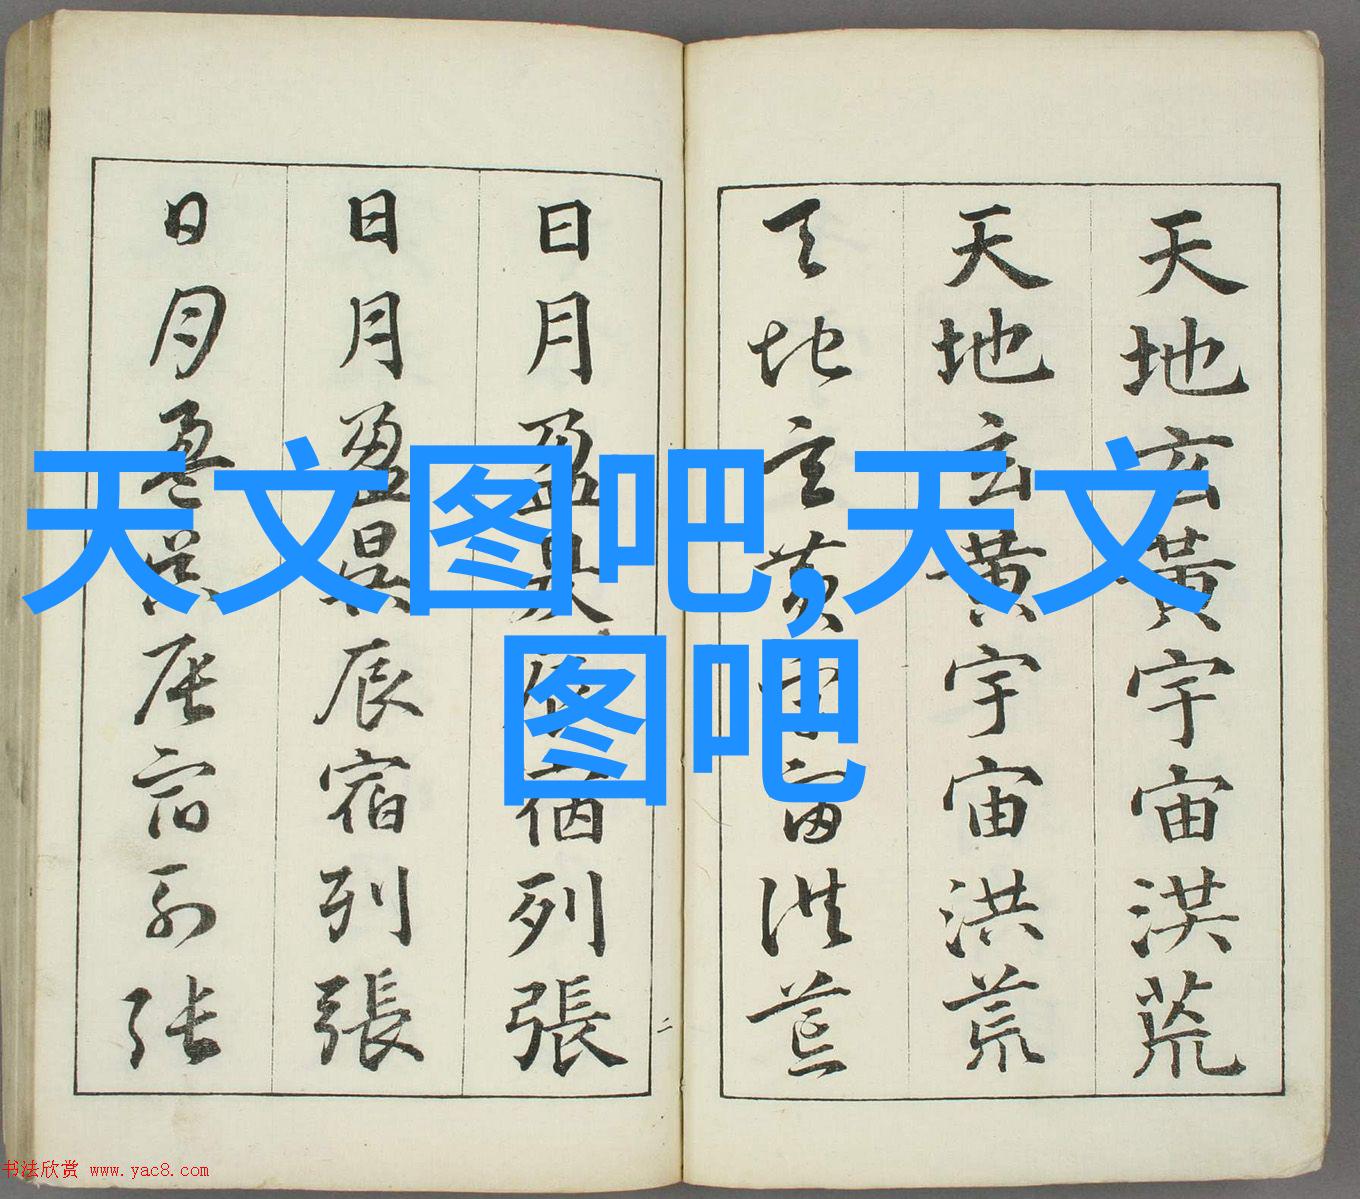 天地玄黃宇宙洪荒
天地玄黄宇宙洪荒
天地玄黄宇宙洪荒
日月盈昃辰宿列張
日月盈昃辰宿列張
日月盈昃辰宿列张
二
天文图吧,天文
图吧
书法欣赏 www.yac8.com